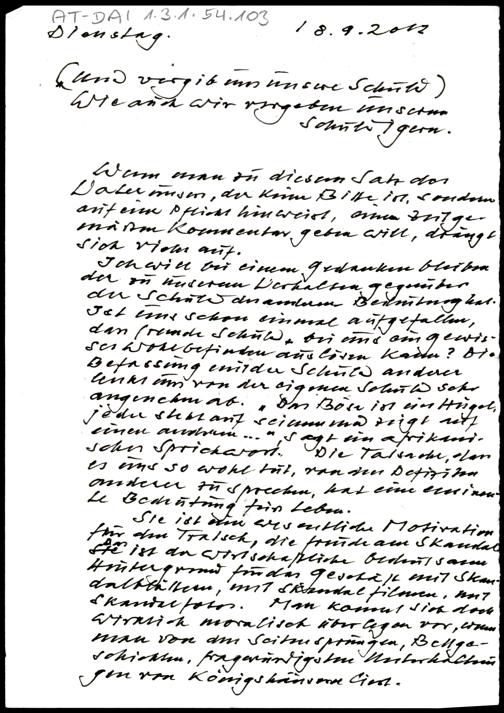 AT-DAI 1.3.1.54.103
Dienstag. 18.9.2012
(Und vergib uns unsere Schuld)
Wie auch wir vergeben unseren
Schuldigern.
Wenn man zu diesem Satz des
Vaterunser, der keine Bitte ist, sondern
auf eine Pflicht hinweist, einen zeitge-
mäßen Kommentar geben will, drängt
sich vieles auf.
Ich will bei einem Gedanken bleiben
der zu unserem Verhalten gegenüber
der Schuld der anderen Bedeutung hat.
Ist uns schon einmal aufgefallen,
dass fremde Schuld, bei uns ein gewis-
ses Wohlbefinden auslösen kann? Die
Befassung mit der Schuld anderer
lenkt uns von der eigenen Schuld sehr
angenehm ab. "Das Böse ist ein Hügel,
jeder steht auf seinem und zeigt auf
einen anderen...", sagt ein afrikani-
sches Sprichwort. Die Tatsache, dass
es uns so wohl tut, von den Defiziten
anderer zu sprechen, hat eine eminen-
te Bedeutung fürs Leben.
Sie ist eine wesentliche Motivation
für den Tratsch, die Freude am Skandal
Das ist der wirtschaftliche bedeutsame
Hintergrund für das Geschäft mit Skan-
dalblättern, mit Skandalfilmen, mit
Skandalfotos. Man kommt sich doch
wirklich moralisch überlegen vor, wenn
man von den Seitensprüngen, Bettge-
schichten, fragwürdigsten Unterhaltun-
gen von Königshäusern liest.